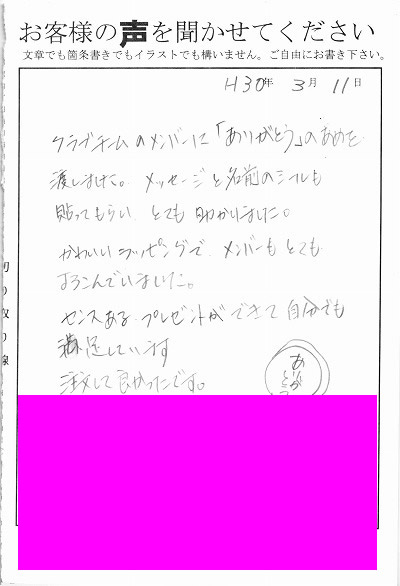 お客様の声を聞かせてください
文章でも箇条書きでもイラストでも構いません。ご自由にお書き下さい。
H30年 3月 11日
クラブチームのメンバーに「ありがとう」のあめを
渡しました。メッセージと名前のシールも
貼ってもらい、とても助かりました。
かわいいラッピングで、メンバーもとても
よろこんでいました。
センスあるプレゼントができて自分でも
満足しています
注文して良かったです。
ありがとう
切り取り線